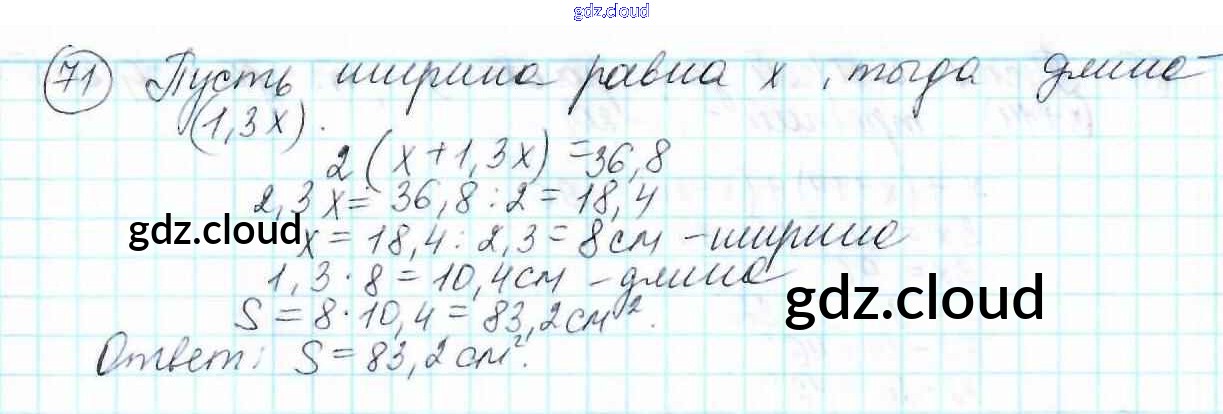 gdz.cloud
71 Пусть ширина равна x, тогда длина
(1,3x).
2(x+1,3x)=36,8
2,3x=36,8:2=18,4
gdz.cloud x=18,4:2,3=8см - ширина
1,3·8=10,4см - длина
gdz.cloud
S=8·10,4=83,2см².
Ответ: S=83,2см².